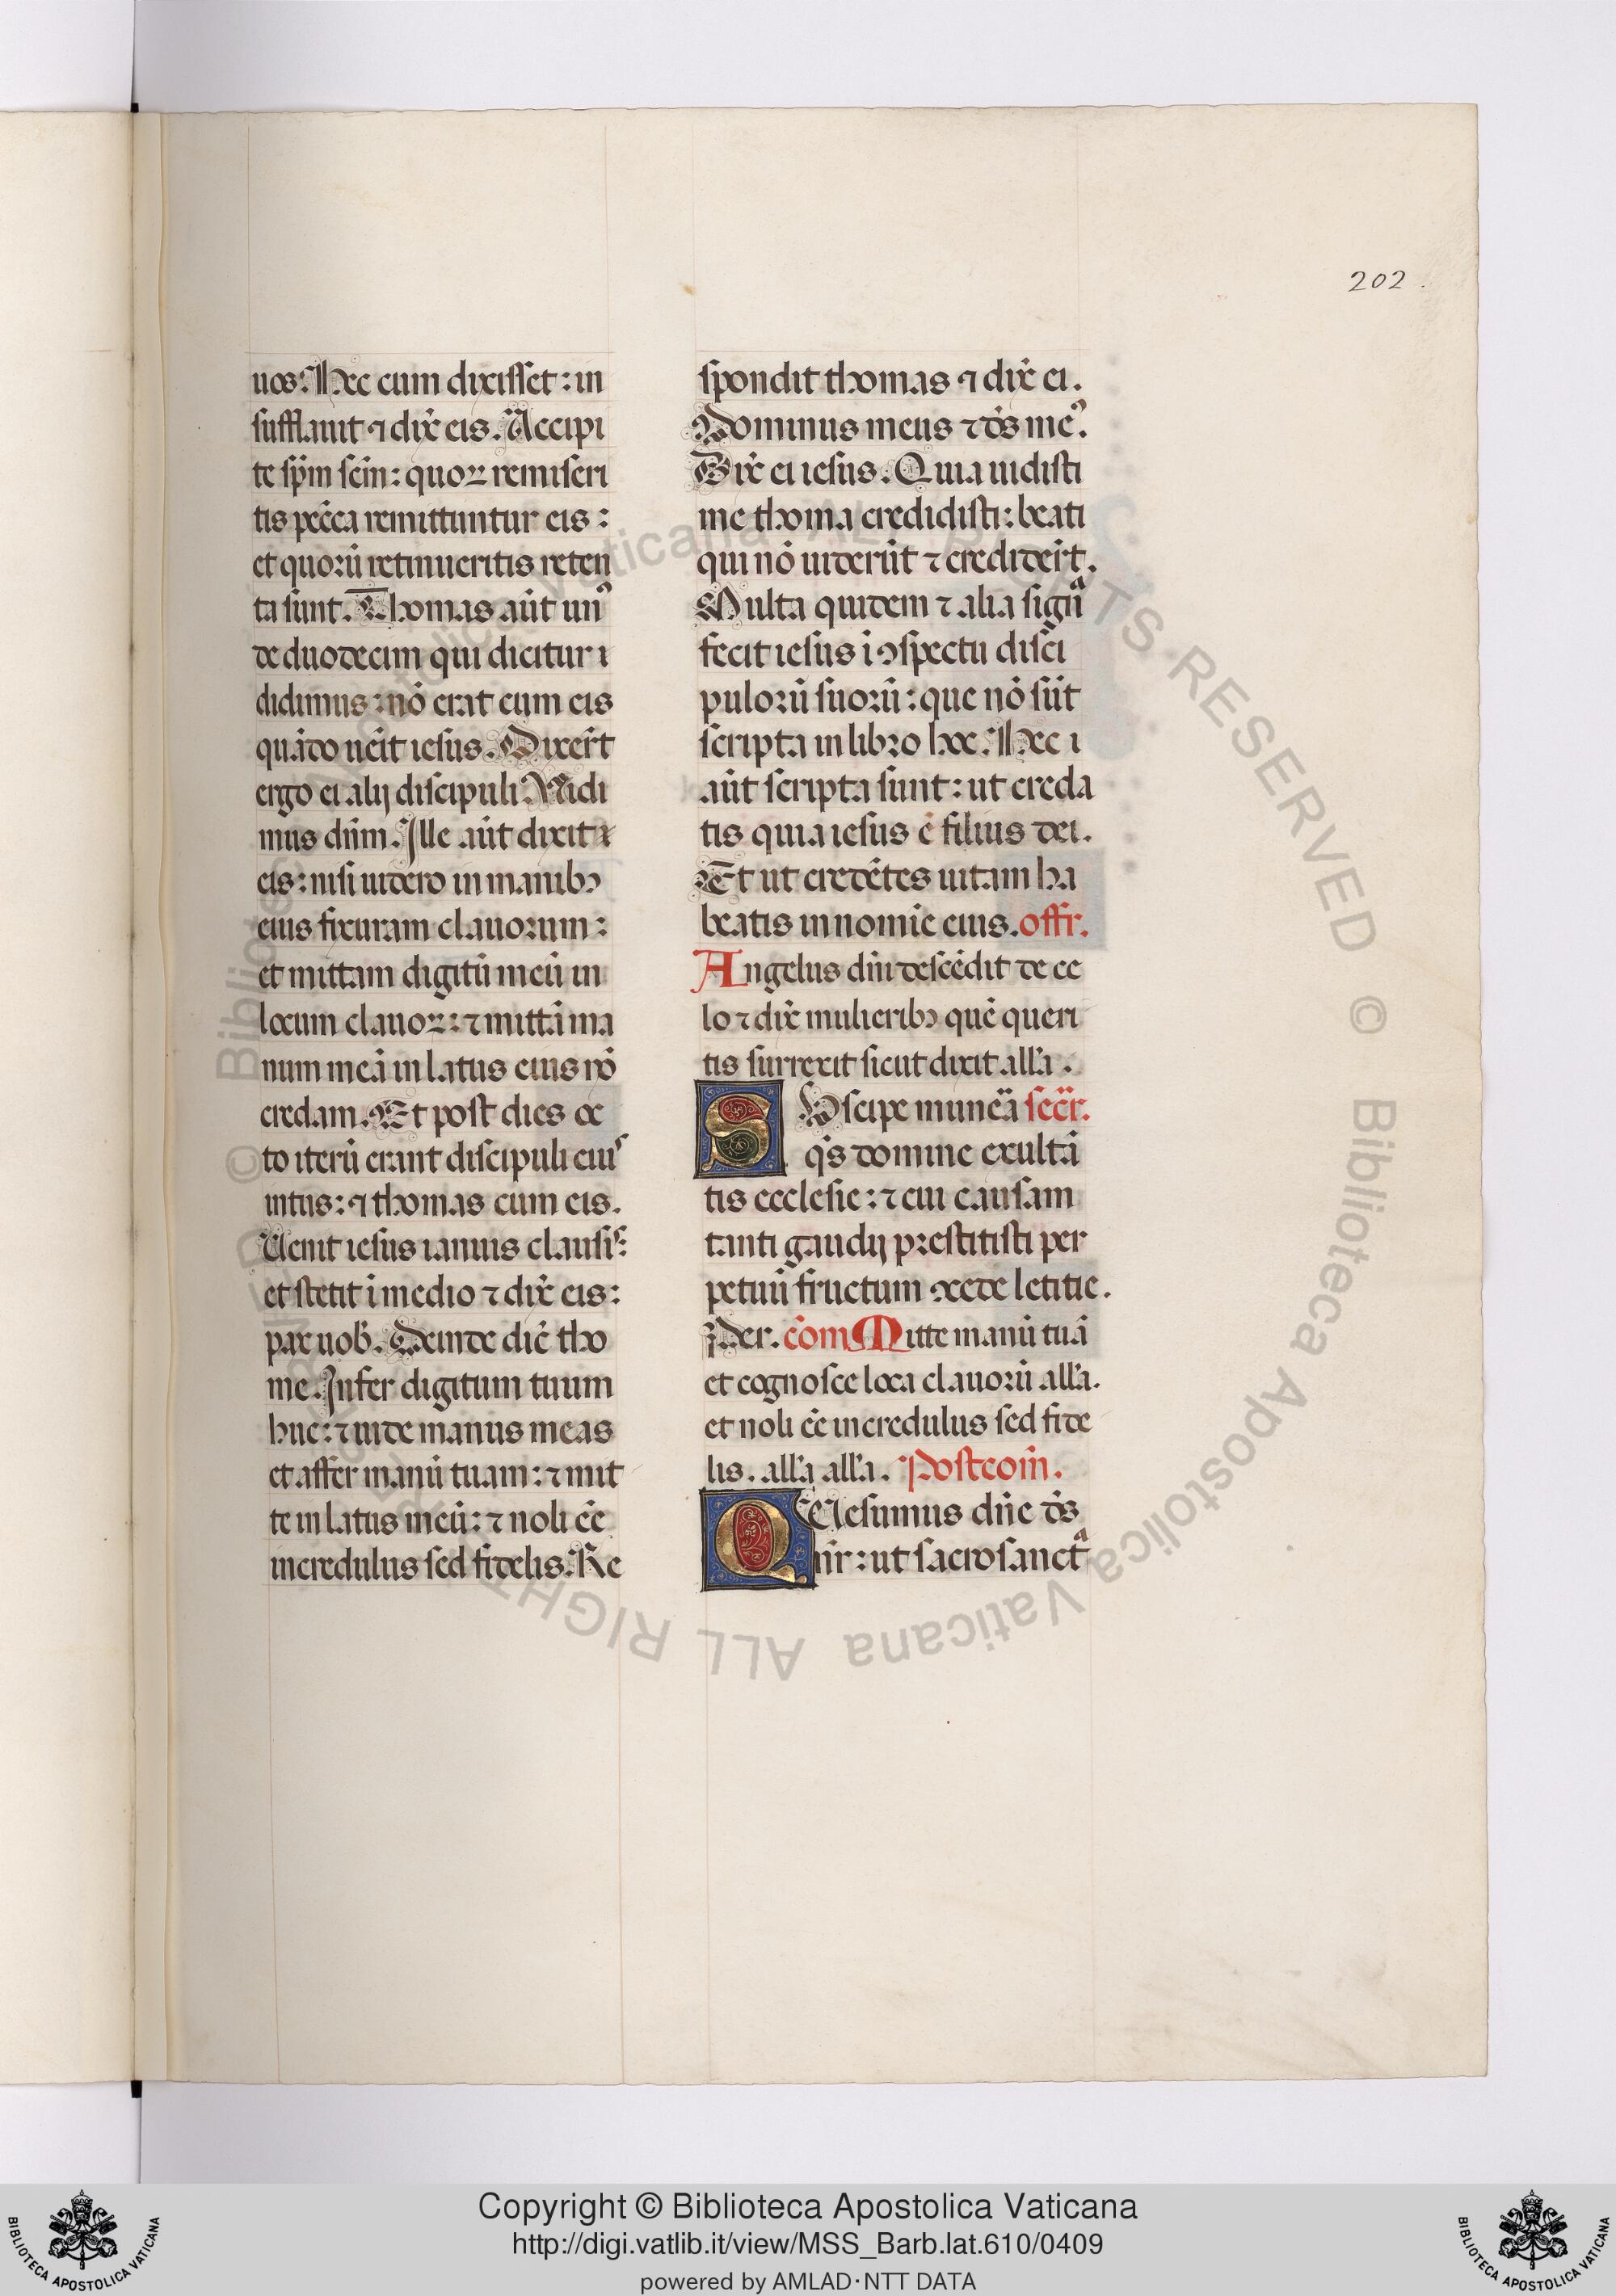 202.
uos. Hec cum dixisset: in
sufflauit ⁊ dix̄ eis. Accipi
te sp̄m sc̄m: quoꝝ remiseri
tis pec̄ca remittuntur eis:
et quorū retinueritis reten
ta sunt. Thomas aūt unꝰ
de duodecim qui dicitur
didimus: nō erat cum eis
quādo uēit iesus. Dixer̄t
ergo ei alij discipuli. Uidi
mus dn̄m. Ille aūt dixit
eis: nisi uidero in manibꝫ
eius fixuram clauorum:
et mittam digitū meū in
locum clauoꝝ: ⁊ mittā ma
num meā in latus eius nō
credam. Et post dies oc
to iterū erant discipuli eius
intus: ⁊ thomas cum eis.
Uenit iesus ianuis clausis:
et stetit ī medio ⁊ dix̄ eis:
pax uob̄. Deinde dic̄ tho
me. Infer digitum tuum
huc: ⁊ uide manus meas
et affer manū tuam: ⁊ mit
te in latus meū: ⁊ noli ēē
incredulus sed fidelis. Re
spondit thomas ⁊ dix̄ ei.
Dominus meus ⁊ ds̄ meꝰ.
Dix̄ ei iesus. Quia uidisti
me thoma credidisti: beati
qui nō uiderūt ⁊ credider̄t.
Multa quidem ⁊ alia signa
fecit iesus ī ꝯspectu disci
pulorū suorū: que nō sūt
scripta in libro hoc. Hec
aūt scripta sunt: ut creda
tis quia iesus ē filius dei.
Et ut credētes uitam ha
beatis in nomīe eius. offr.
Angelus dn̄i descēdit de ce
lo ⁊ dix̄ mulieribꝫ quē queri
tis surrexit sicut dixit all'a.
Suscipe munēa secr̄.
qs̄ domine exultā
tis ecclesie: ⁊ cui causam
tanti gaudij prestitisti per
petuū fructum ꝯcede letitie.
com̄ Mitte manū tuā
et cognosce loca clauorū all'a.
et noli ēē incredulus sed fide
lis. all'a all'a. Postcom̄.
Quesumus dn̄e ds̄
nr̄: ut sacrosancta
© Biblioteca Apostolica Vaticana ALL RIGHTS RESERVED
© Biblioteca Apostolica Vaticana ALL RIGHT
Copyright © Biblioteca Apostolica Vaticana
http://digi.vatlib.it/view/MSS_Barb.lat.610/0409
powered by AMLAD·NTT DATA
BIBLIOTECA APOSTOLICA VATICANA
BIBLIOTECA APOSTOLICA VATICANA